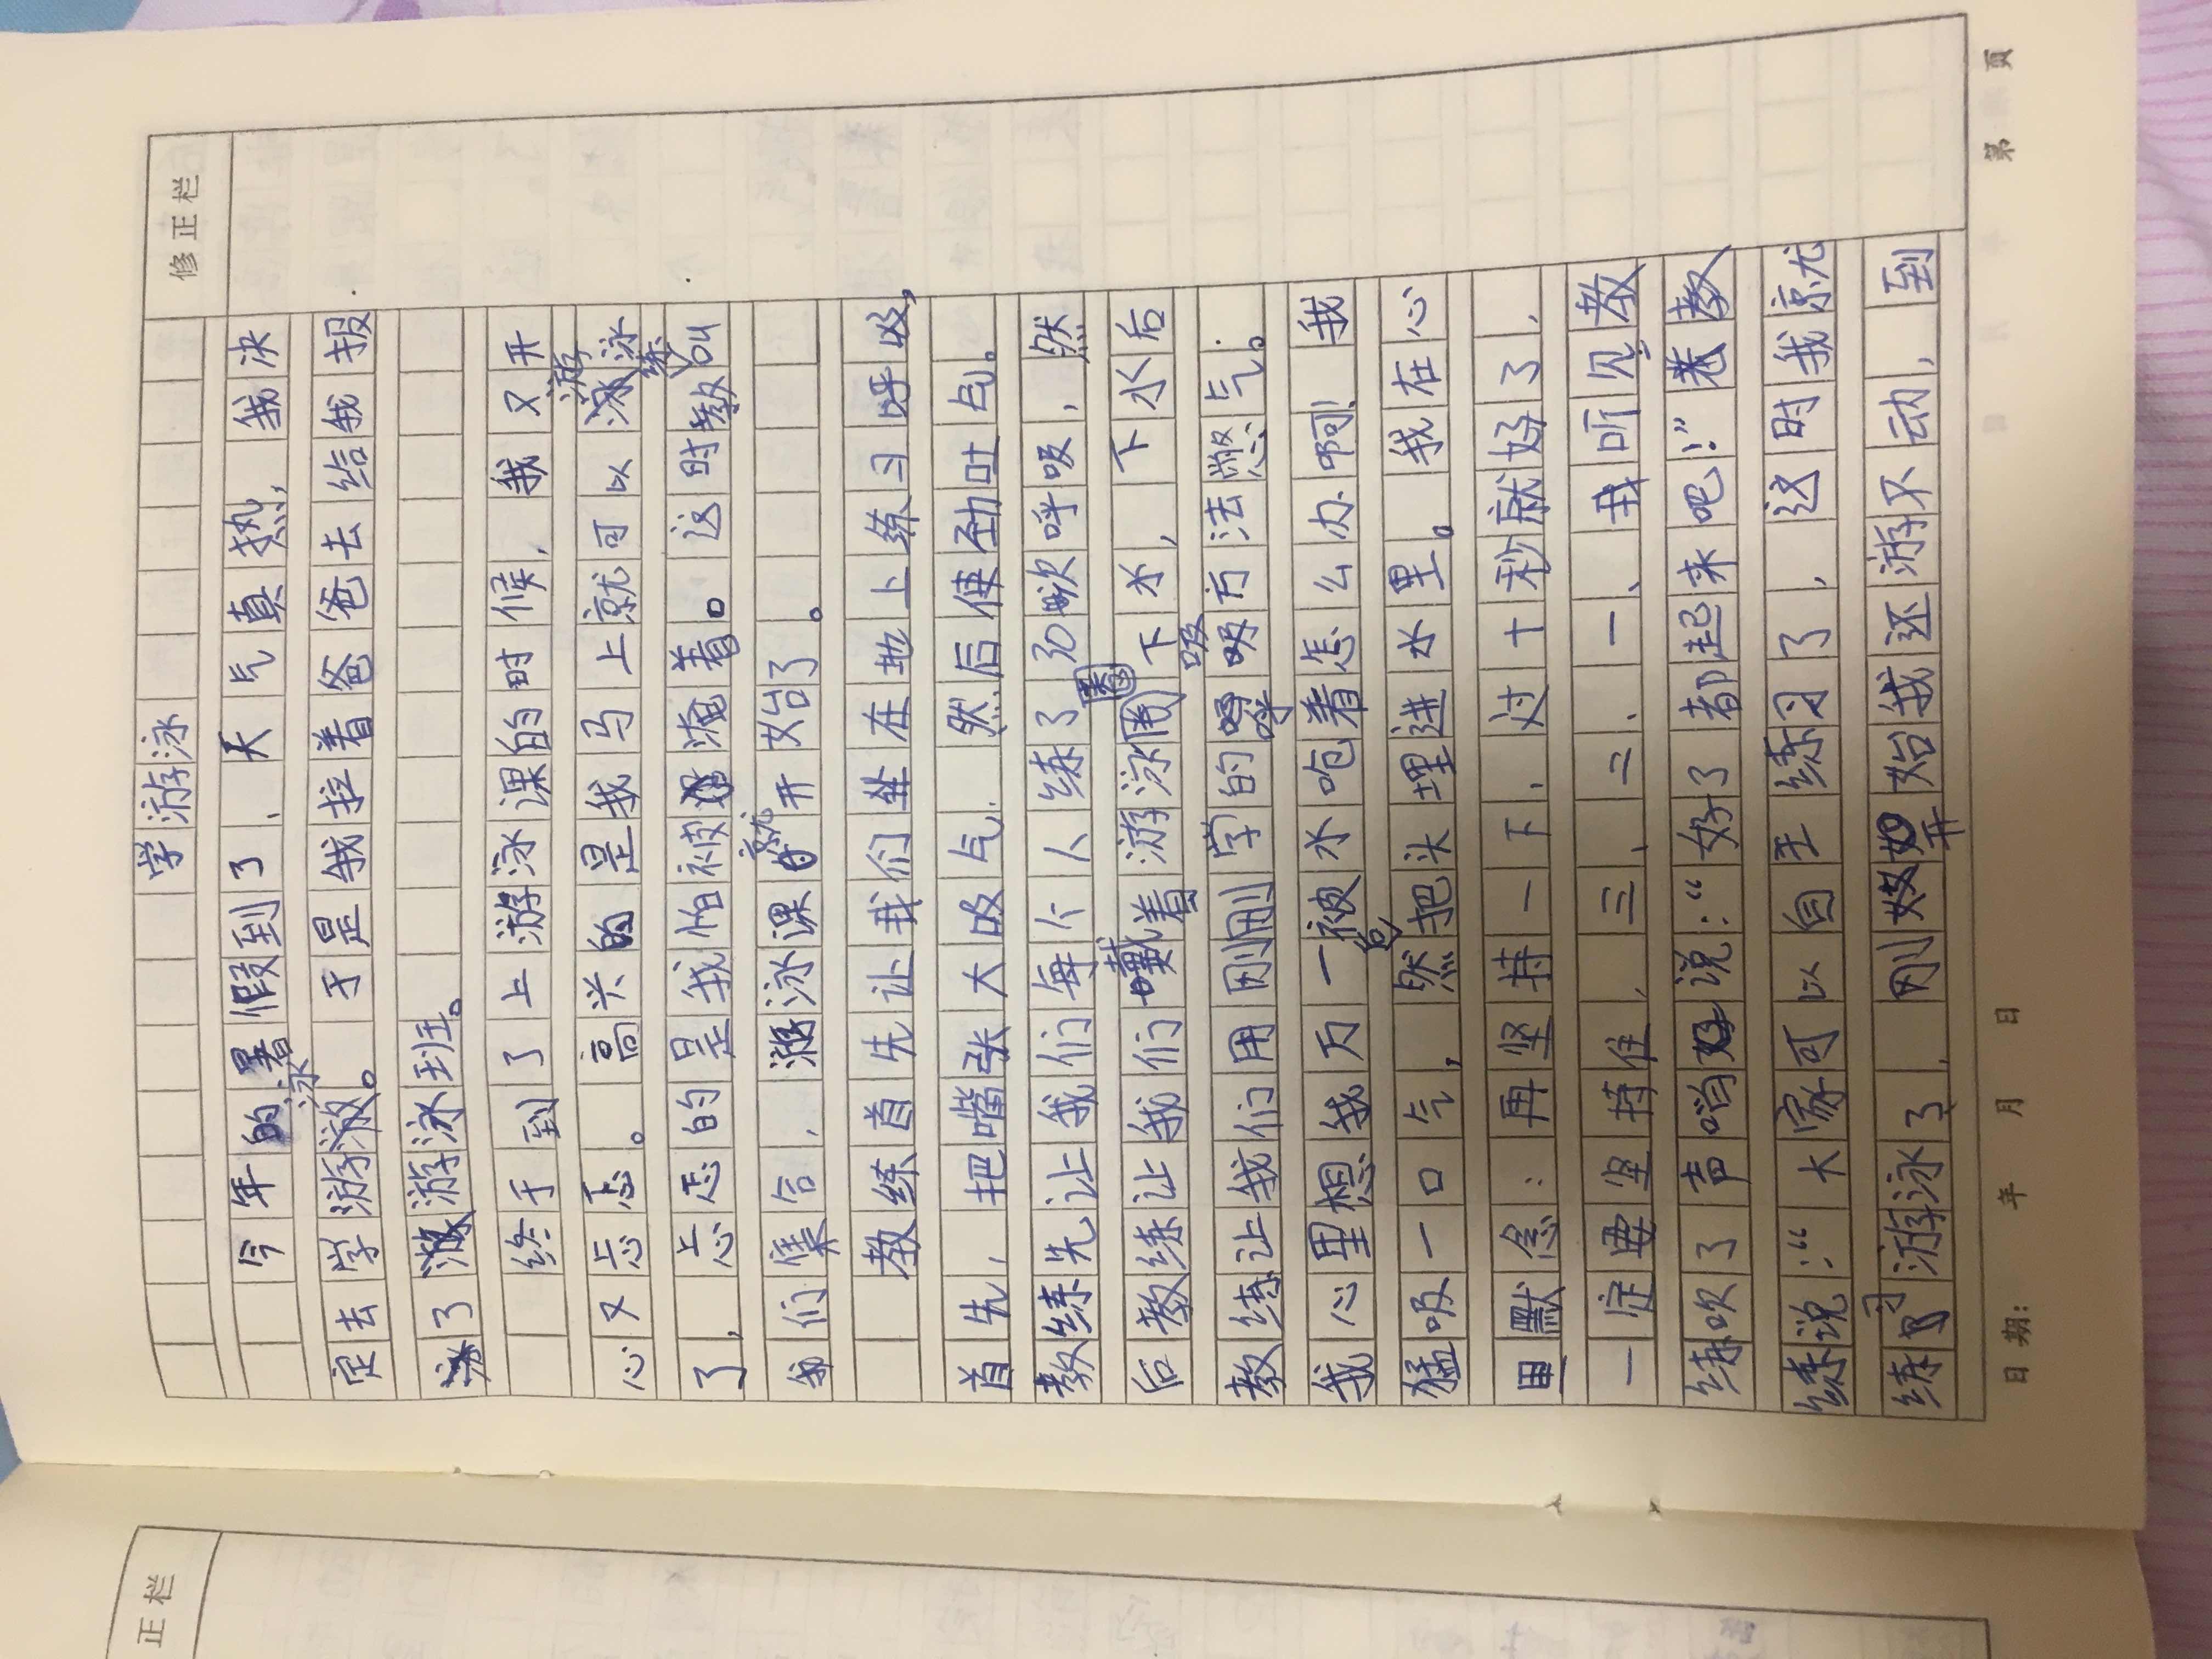 学游泳
修正栏
今年的暑假到了、天气真热，我决
定去学游泳。于是我拉着爸爸去给我报
了游泳班。
终于到了上游泳课的时候，我又开
心又忐忑。高兴的是我马上就可以游泳
了，忐忑的是我怕被淹着。这时教练叫
我们集合，游泳课就开始了。
教练首先让我们坐在地上练习呼吸，
首先，把嘴张大吸气，然后使劲吐气。
教练先让我们每个人练了30次呼吸，然
后教练让我们戴着游泳圈下水，下水后
教练让我们用刚刚学的呼吸方法憋气。
我心里想我万一被水呛着怎么办啊！我
猛吸一口气，然后把头埋进水里。我在心
里默念：再坚持一下，过十秒就好了，
一定要坚持住，三、二、一、我听见教
练吹了声哨说：“好了都起来吧！”教
练说：“大家可以自主练习了，这时我就
练习游泳了，刚开始我还游不动，到
日期： 年 月 日 第 页
正栏